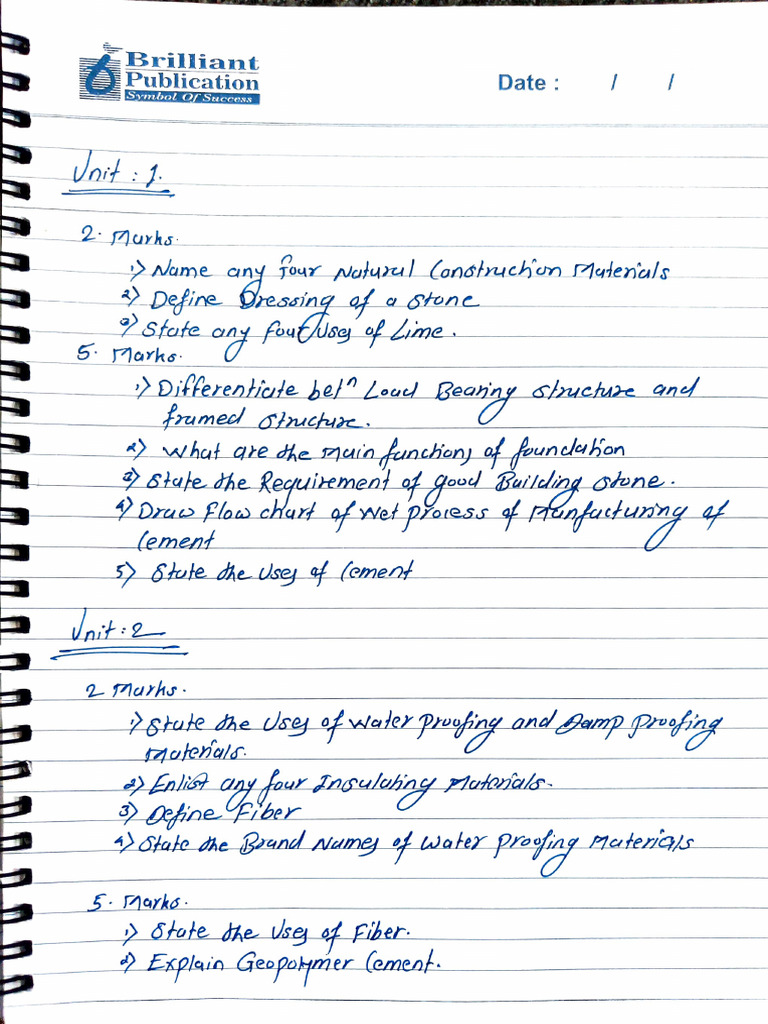 Brilliant
Publication
Symbol Of Success
Date : / /
Unit : 1.
2. Marks.
1) Name any four Natural Construction Materials
2) Define Dressing of a Stone
3) State any four Uses of Lime.
5. Marks.
1) Differentiate betn Load Bearing Structure and
framed Structure.
2) What are the Main functions of foundation
3) State the Requirement of good Building Stone.
4) Draw Flow chart of Wet Process of Manfacturing of
Cement
5) State the Uses of Cement
Unit : 2
2 Marks.
1) State the Uses of Water Proofing and Damp Proofing
Materials.
2) Enlist any four Insulating Materials.
3) Define Fiber
4) State the Brand Names of Water Proofing Materials
5. Marks.
1) State the Uses of Fiber.
2) Explain Geopolymer Cement.